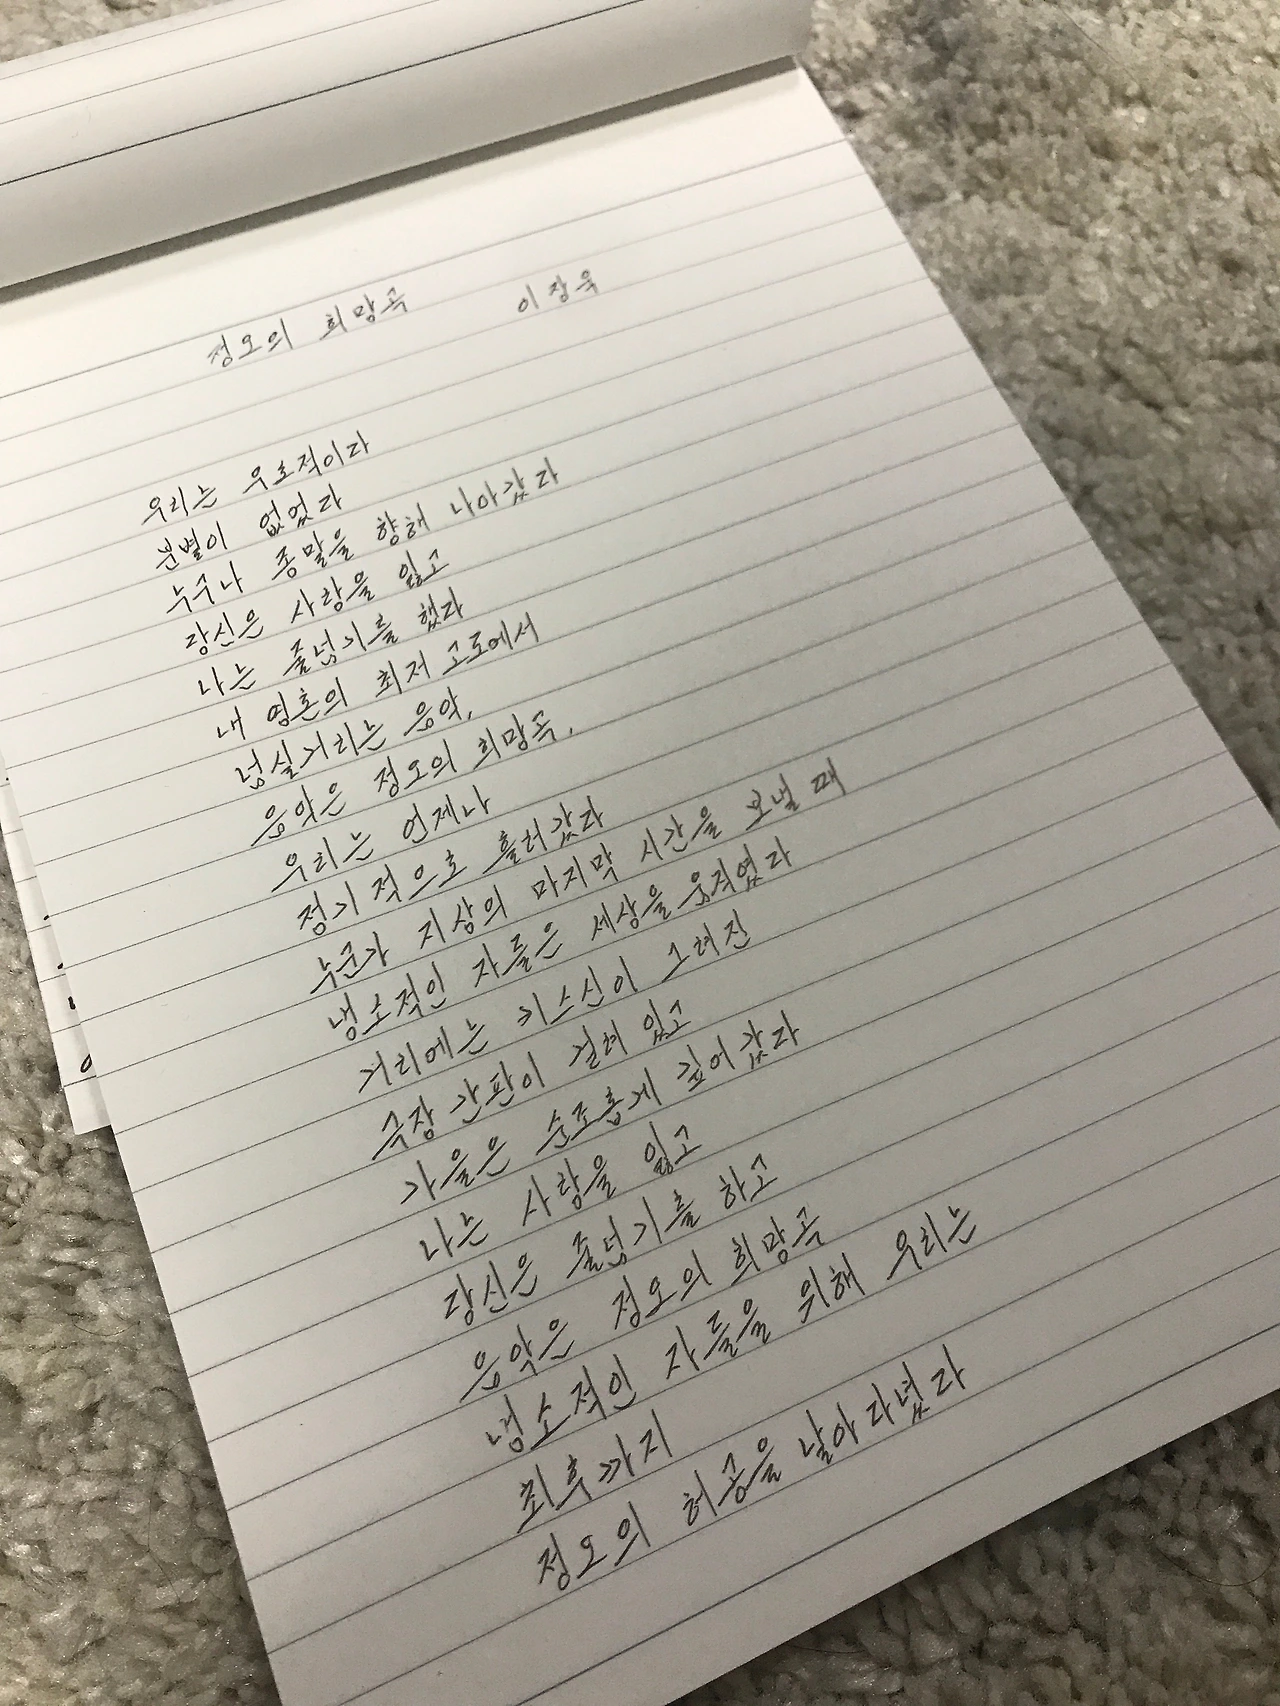 정오의 희망곡 이장욱
우리는 우호적이다
분별이 없었다
누구나 종말을 향해 나아갔다
당신은 사랑을 잃고
나는 줄넘기를 했다
내 영혼의 최저 고도에서
넘실거리는 음악,
음악은 정오의 희망곡,
우리는 언제나
정기적으로 흘러갔다
누군가 지상의 마지막 시간을 보낼 때
냉소적인 자들은 세상을 움직였다
거리에는 키스신이 그려진
극장 간판이 걸려 있고
가을은 순조롭게 깊어갔다
나는 사랑을 잃고
당신은 줄넘기를 하고
음악은 정오의 희망곡
냉소적인 자들을 위해 우리는
최후까지
정오의 허공을 날아다녔다